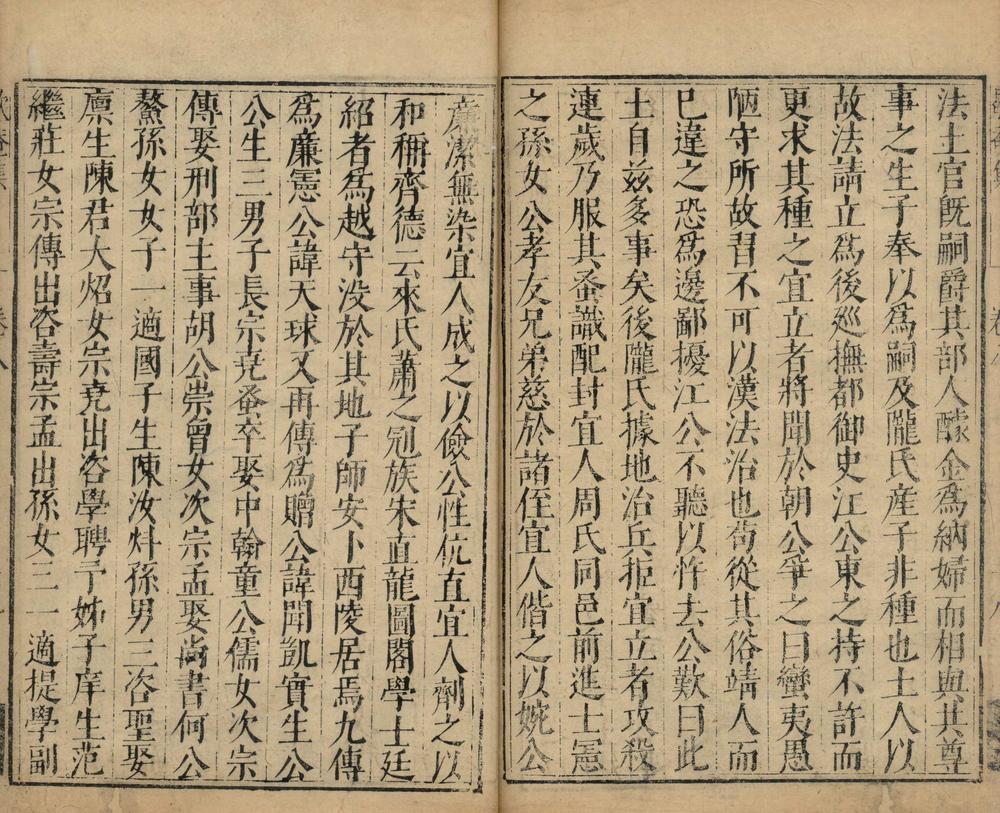 法土官旣嗣爵其部人醵金爲納婦而相與共尊
事之生子奉以爲嗣及隴氏産子非種也土人以
故法請立爲後巡撫都御史江公東之持不許而
更求其種之宜立者將聞於朝公爭之曰蠻夷愚
陋守所故習不可以漢法治也苟從其俗靖人而
已違之恐爲邊鄙擾江公不聽以忤去公歎曰此
土自兹多事矣後隴氏據地治兵拒宜立者攻殺
連歲乃服其蚤識配封宜人周氏同邑前進士憲
之孫女公孝友兄弟慈於諸侄宜人偕之以婉公
廉潔無染宜人成之以儉公性伉直宜人劑之以
和稱齊德云來氏蕭之冠族宋直龍圖閣學士廷
紹者爲越守没於其地子師安卜西陵居焉九傳
爲廉憲公諱天球又再傳爲贈公諱聞凱實生公
公生三男子長宗堯蚤卒娶中翰童公儒女次宗
傳娶刑部主事胡公崇曾女次宗孟娶尚書何公
鰲孫女女子一適國子生陳汝炓孫男三咨聖娶
廪生陳君大炤女宗堯出咨學聘予姊子庠生范
繼莊女宗傳出咨壽宗孟出孫女三一適提學副